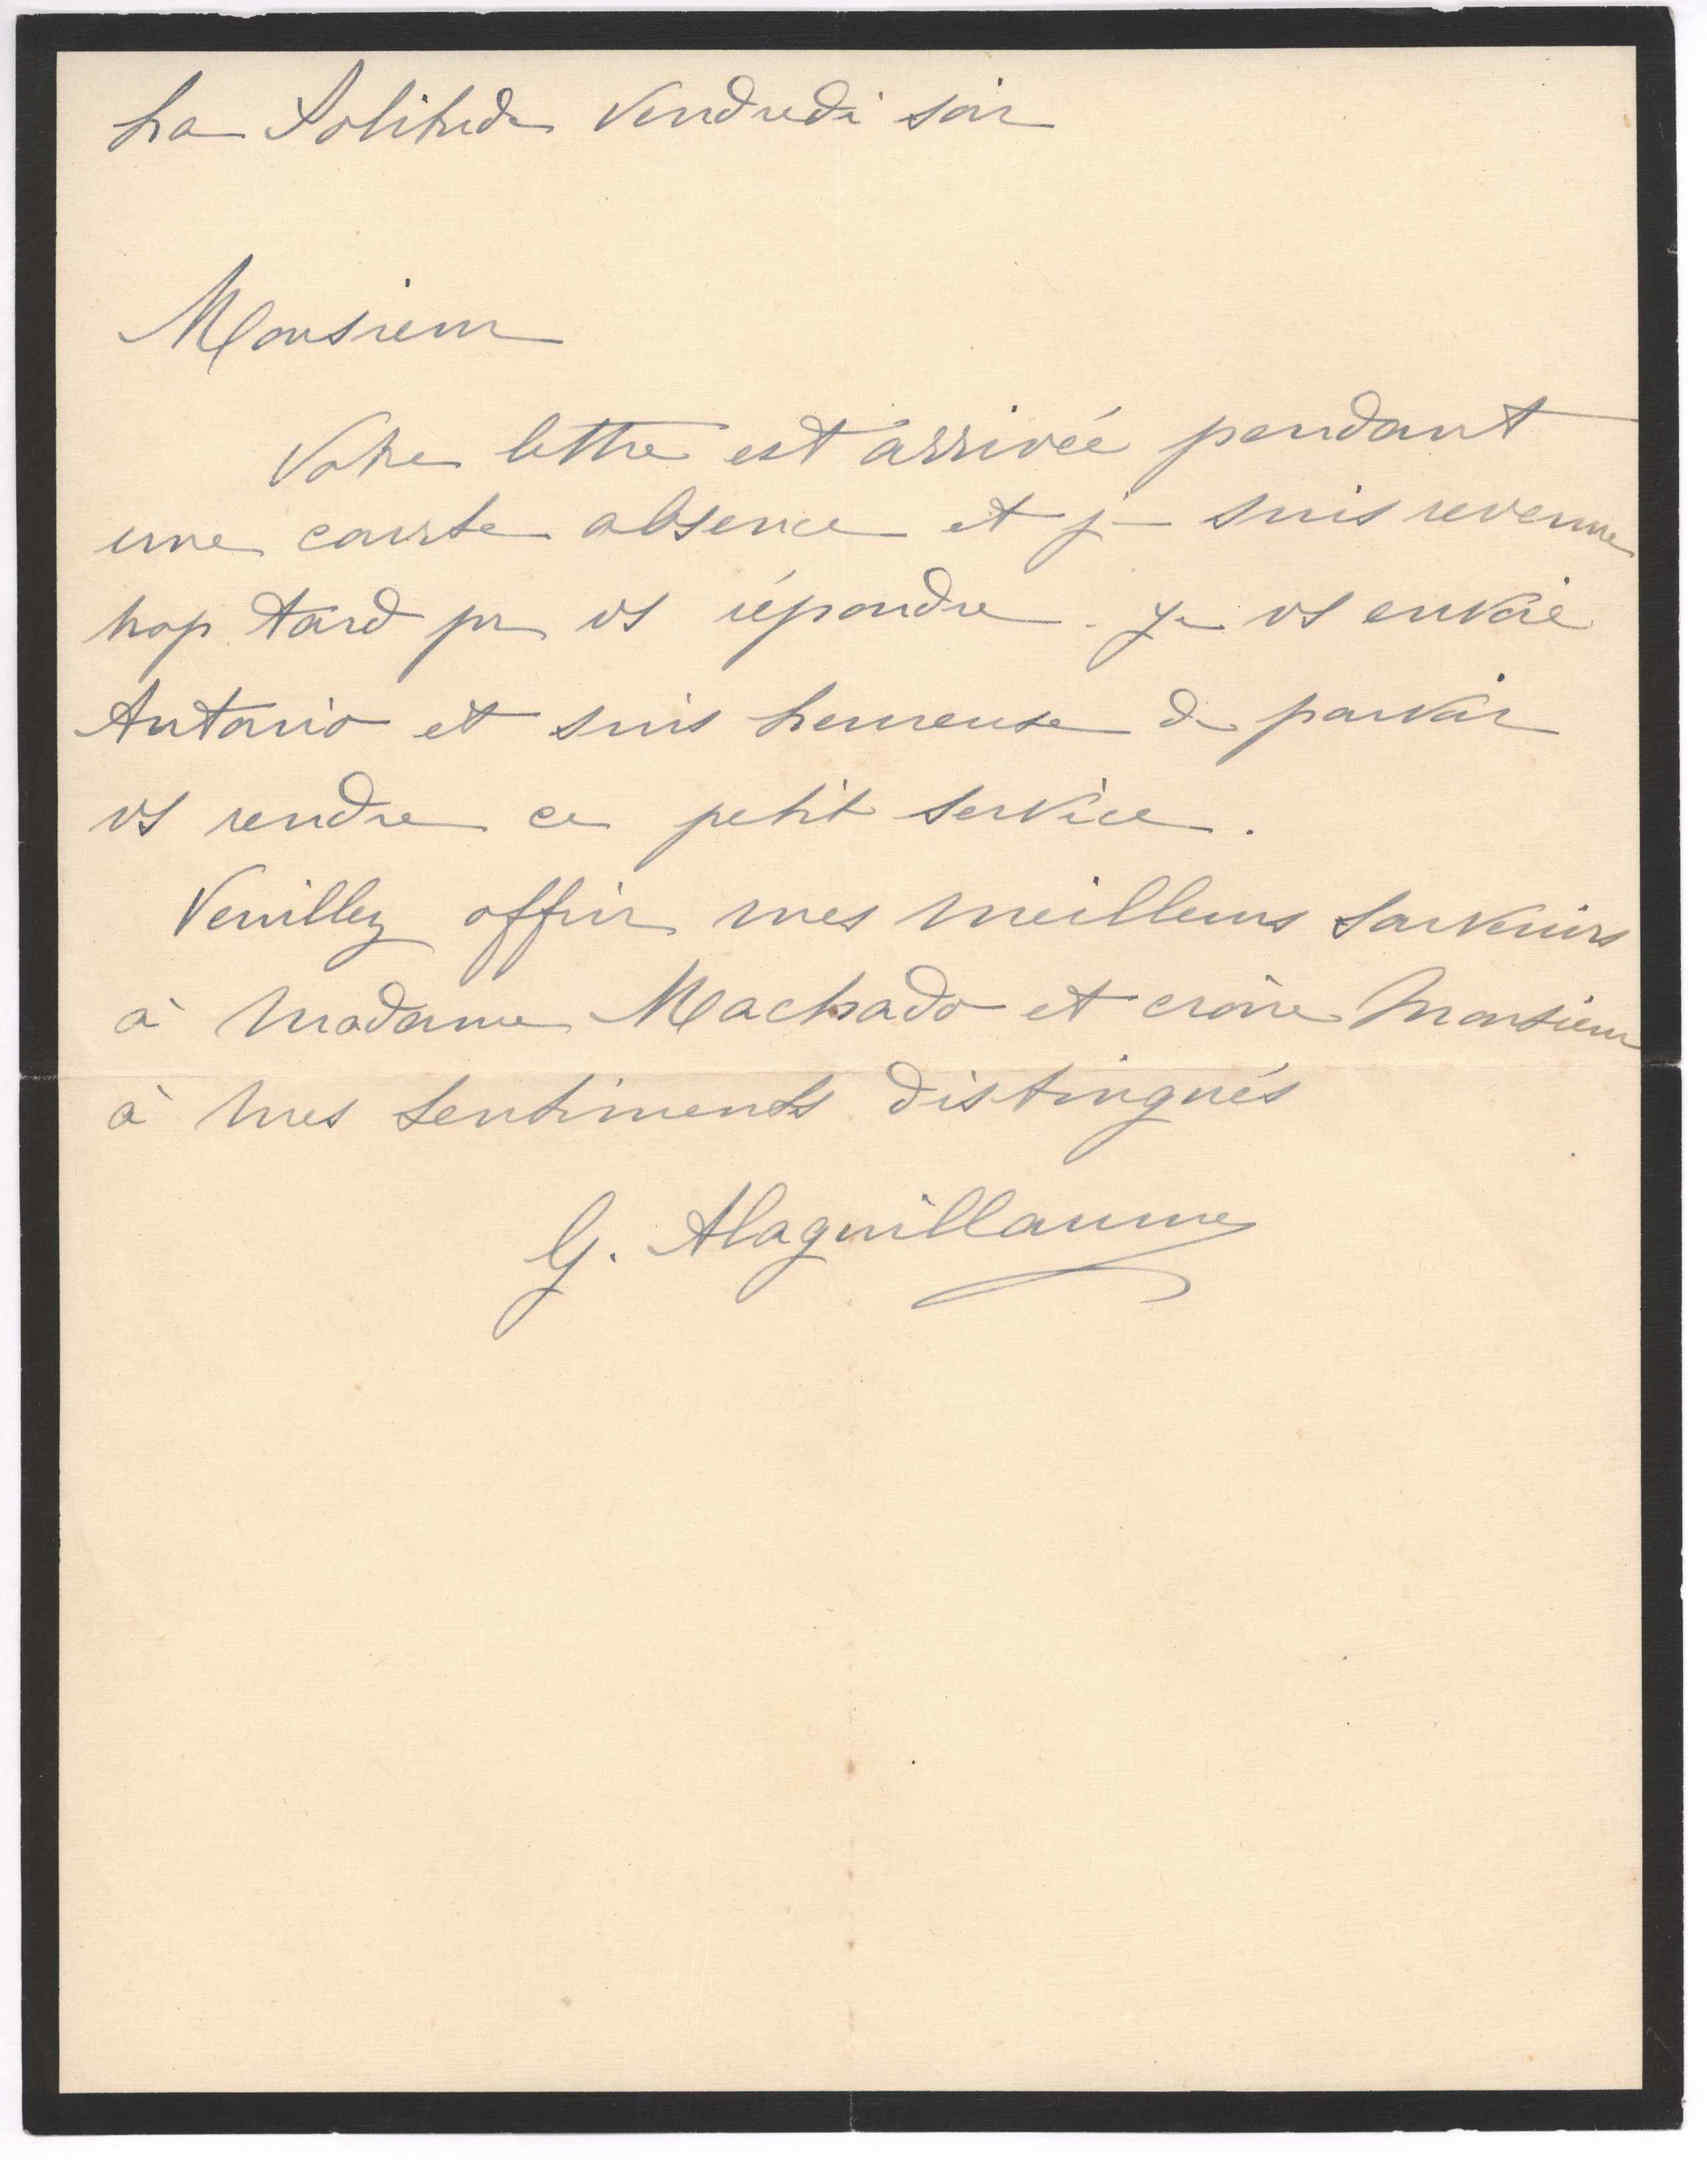 La Solitude Vendredi soir
Monsieur
Votre lettre est arrivée pendant
une courte absence et je suis revenue
trop tard pr vs répondre. Je vs envoie
Antonio et suis heureuse de pouvoir
vs rendre ce petit service.
Veuillez offrir mes meilleurs souvenirs
à Madame Machado et croire Monsieur
à mes sentiments distingués
G. Alaguillaume